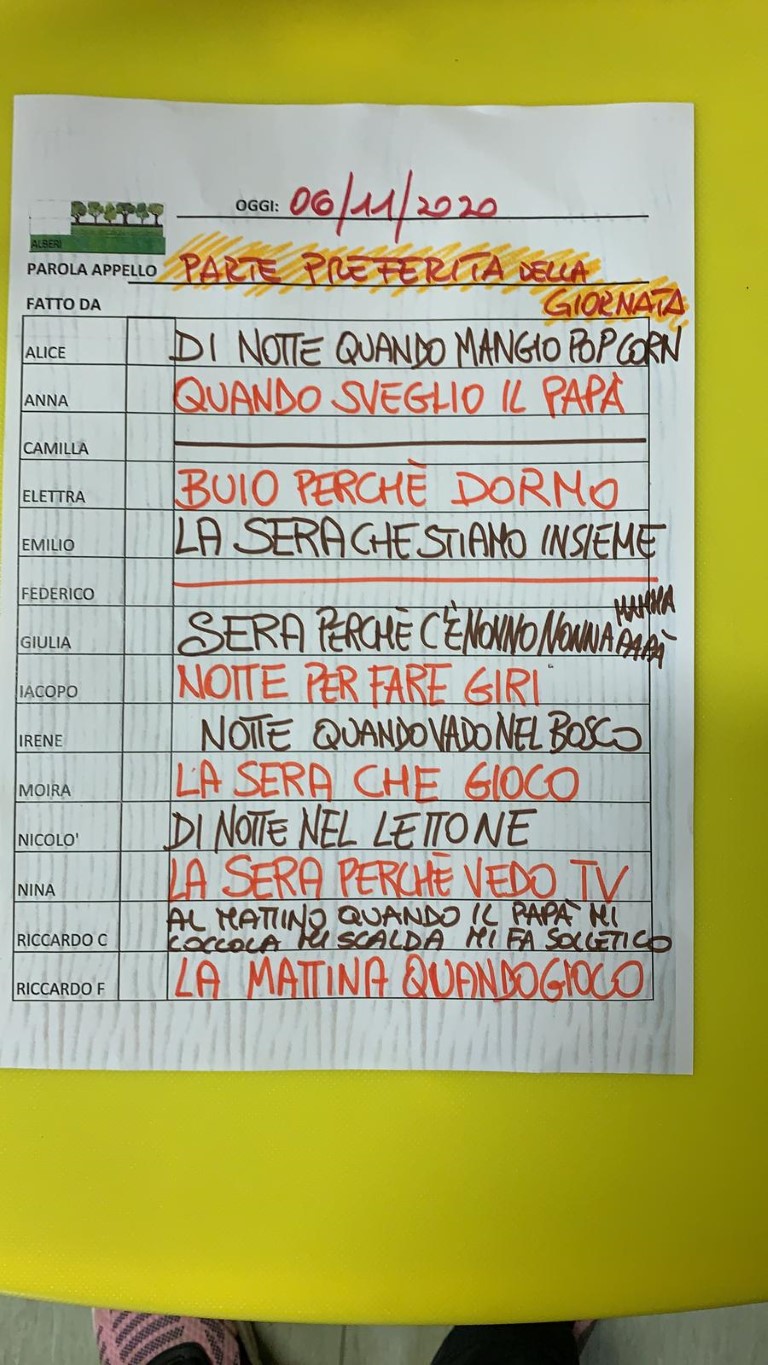 OGGI: 06/11/2020
ALBERI
PAROLA APPELLO PARTE PREFERITA DELLA
GIORNATA
FATTO DA
ALICE DI NOTTE QUANDO MANGIO POP CORN
ANNA QUANDO SVEGLIO IL PAPÀ
CAMILLA
ELETTRA BUIO PERCHÈ DORMO
EMILIO LA SERA CHE STIAMO INSIEME
FEDERICO
GIULIA SERA PERCHÈ C'È NONNO NONNA MAMMA PAPÀ
IACOPO NOTTE PER FARE GIRI
IRENE NOTTE QUANDO VADO NEL BOSCO
MOIRA LA SERA CHE GIOCO
NICOLO' DI NOTTE NEL LETTONE
NINA LA SERA PERCHÈ VEDO TV
RICCARDO C AL MATTINO QUANDO IL PAPÀ MI
COCCOLA MI SCALDA MI FA SOLLETICO
RICCARDO F LA MATTINA QUANDO GIOCO